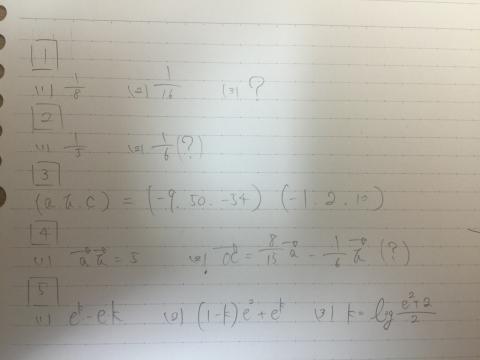 1
(1) 1/8 (2) 1/16 (3) ?
2
(1) 1/5 (2) 1/6 (?)
3
(a. b. c) = (-9. 50. -54) (-1. 2. 10)
4
(1) = 5 (2) = 8/15 - 1/6 (?)
5
(1) e^k - ek (2) (1-k)e^2 + e^k (3) k = log (e^2+2)/2